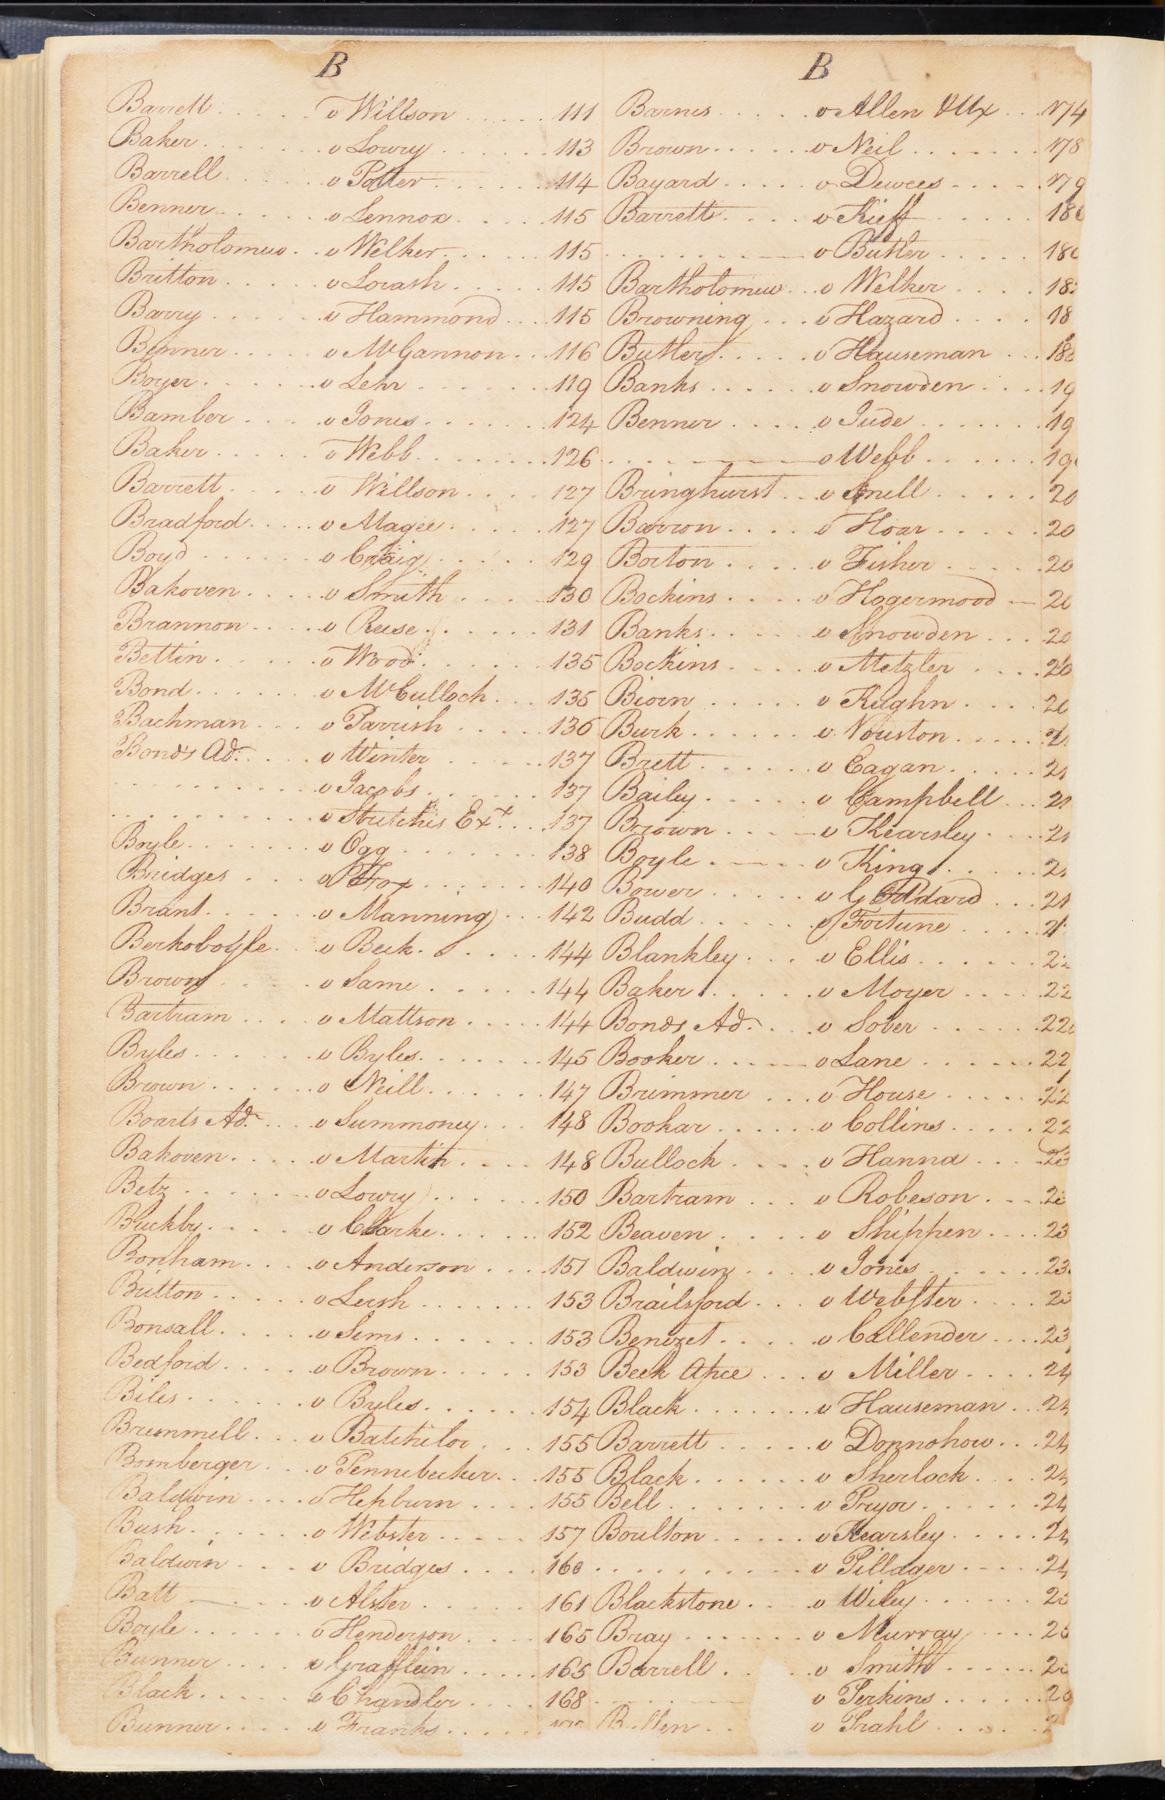 B
Barrett . . . . . v Willson . . . . . 111
Baker . . . . . v Lowry . . . . . 113
Barrell . . . . . v Potter . . . . . 114
Benner . . . . . v Lennox . . . . . 115
Bartholomew . . v Welker . . . . . 115
Britton . . . . . v Lorash . . . . . 115
Barry . . . . . v Hammond . . . 115
Benner . . . . . v McGannon . . 116
Boyer . . . . . v Lehr . . . . . 119
Bamber . . . . . v Jones . . . . . 124
Baker . . . . . v Webb . . . . . 126
Barrett . . . . . v Willson . . . . 127
Bradford . . . . v Magee . . . . . 127
Boyd . . . . . v Craig . . . . . 129
Bakoven . . . . v Smith . . . . . 130
Brannon . . . . v Reese . . . . . 131
Bettin . . . . . v Wood . . . . . 135
Bond . . . . . v McCulloch . . . 135
Bachman . . . v Parrish . . . . 136
Bonds Adr. . . . v Winter . . . . . 137
. . . . . v Jacobs . . . . . 137
. . . . . v Stretches Exr . . . 137
Boyle . . . . . v Ogg . . . . . 138
Bridges . . . . v Fox . . . . . 140
Brant . . . . . v Manning . . . 142
Berkoboyle . . v Beck . . . . . 144
Brown . . . . . v Same . . . . . 144
Bartram . . . . v Mattson . . . . 144
Byles . . . . . v Byles . . . . . 145
Brown . . . . . v Neill . . . . . 147
Boarts Adr. . . . v Summoney . . . 148
Bakoven . . . . v Martin . . . . 148
Betz . . . . . v Lowry . . . . . 150
Buckby . . . . v Clarke . . . . . 152
Bonham . . . . v Anderson . . . . 151
Britton . . . . v Lersh . . . . . 153
Bonsall . . . . v Sims . . . . . 153
Bedford . . . . v Brown . . . . . 153
Biles . . . . . v Byles . . . . . 154
Brummell . . . v Batchelor . . . 155
Bomberger . . . v Pennebecker . . 155
Baldwin . . . . v Hepburn . . . . 155
Bush . . . . . v Webster . . . . 157
Baldwin . . . . v Bridges . . . . 160
Batt . . . . . v Alster . . . . . 161
Boyle . . . . . v Henderson . . . 165
Bunner . . . . v Grafflein . . . . 165
Black . . . . . v Chandler . . . . 168
Bunner . . . . v Franks . . . . .
B
Barnes . . . . . v Allen & Ux . . . 174
Brown . . . . . v Neil . . . . . 178
Bayard . . . . . v Dewees . . . . 179
Barrett . . . . . v Kieff . . . . .
. . . . . v Butler . . . . .
Bartholomew . . v Welker . . . .
Browning . . . v Hazard . . . .
Butler . . . . . v Hauseman . . .
Banks . . . . . v Snowden . . . .
Benner . . . . . v Jude . . . . .
. . . . . v Webb . . . . .
Bringhurst . . . v Snell . . . . .
Barron . . . . . v Hoar . . . . .
Borton . . . . . v Fisher . . . . .
Bockins . . . . v Hogermood
Banks . . . . . v Snowden . . .
Bockins . . . . v Metzler . . . .
Bioren . . . . . v Kughn . . . .
Burk . . . . . v Nouston . . . .
Brett . . . . . v Eagan . . . . .
Bailey . . . . . v Campbell . . .
Brown . . . . . v Kearsley . . . .
Boyle . . . . . v King . . . . .
Bower . . . . . v Goddard . . .
Budd . . . . . v Fortune . . . .
Blankley . . . . v Ellis . . . . .
Baker . . . . . v Moyer . . . . .
Bonds Adr. . . . v Sober . . . . .
Booker . . . . . v Lane . . . . .
Brimmer . . . . v House . . . . .
Bookar . . . . . v Collins . . . .
Bullock . . . . v Hanna . . . .
Bartram . . . . v Robeson . . . .
Beaven . . . . . v Shippen . . . .
Baldwin . . . . v Jones . . . . .
Brailsford . . . v Webster . . . .
Benezet . . . . v Callender . . . .
Beck Apee . . . v Miller . . . .
Black . . . . . v Hauseman . . .
Barrett . . . . v Donnohow . . .
Black . . . . . v Sherlock . . . .
Bell . . . . . v Pryor . . . . .
Boulton . . . . v Kearsley . . . .
. . . . . v Pillager . . . .
Blackstone . . . v Wiley . . . . .
Bray . . . . . v Murray . . . .
Barrell . . . . v Smith . . . . .
. . . . . v Perkins . . . . .
v Prahl . . . .